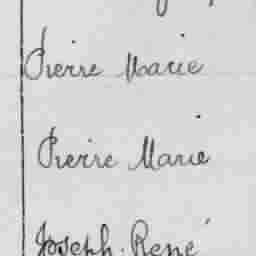 Pierre Marie
Pierre Marie
Joseph René